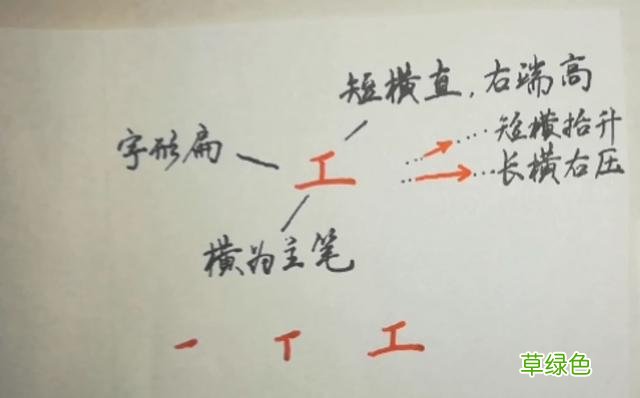 短横直,右端高
短横抬升
字形扁
工
长横右压
横为主笔
一 丅 工
草绿色